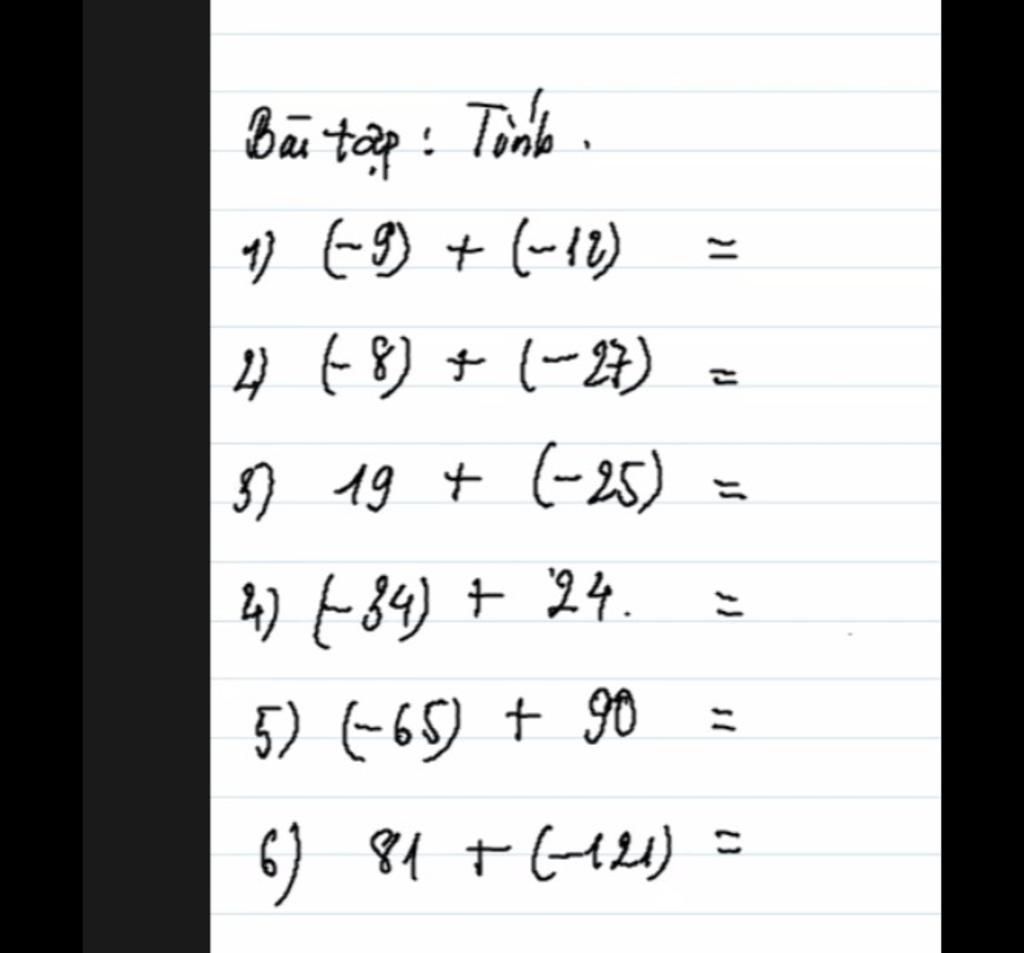 Bài tập : Tính.
1) (-9) + (-12) =
2) (-8) + (-27) =
3) 19 + (-25) =
4) (-34) + 24. =
5) (-65) + 90 =
6) 81 + (-121) =